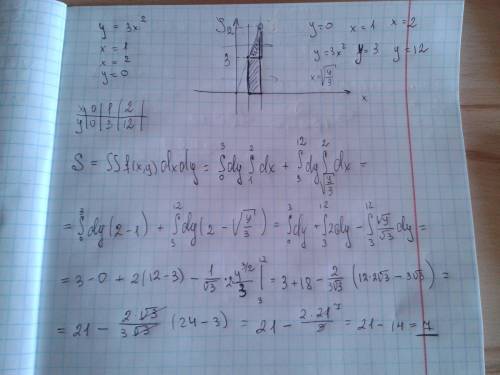 y = 3x²
x = 1
x = 2
y = 0
S₂
3
x
y=0 x=1 x=2
y=3x² y=3 y=12
x=√(y/3)
x 0 1 2
y 0 3 12
S = ∬ f(x,y) dxdy = ∫₀³ dy ∫₁² dx + ∫₃¹² dy ∫_{√(y/3)}² dx =
= ∫₀³ dy (2-1) + ∫₃¹² dy (2 - √(y/3)) = ∫₀³ dy + ∫₃¹² 2dy - ∫₃¹² √y/√3 dy =
= 3-0 + 2(12-3) - 1/√3 · 2y^{3/2}/3 |₃¹² = 3+18 - 2/(3√3) (12·2√3 - 3√3) =
= 21 - 2·√3/(3√3) (24-3) = 21 - 2·21⁷/3 = 21-14 = 7